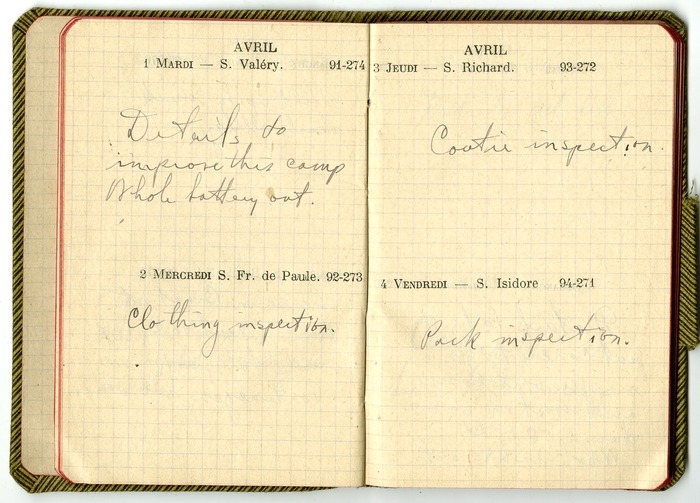 AVRIL
1 MARDI — S. Valéry. 91-274
Details to
improve this camp
Whole battery out.
2 MERCREDI S. Fr. de Paule. 92-273
Clothing inspection.
AVRIL
3 JEUDI — S. Richard. 93-272
Cootie inspection.
4 VENDREDI — S. Isidore 94-271
Pack inspection.